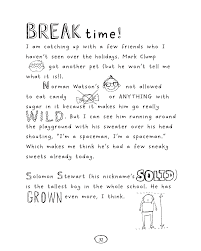 BREAK time!
I am catching up with a few friends who I
haven't seen over the holidays. Mark Clump
got another pet (but he won't tell me
what it is!).
Norman Watson's not allowed
to eat candy or ANYTHING with
sugar in it because it makes him go really
WILD. But I can see him running around
the playground with his sweater over his head
shouting, "I'm a spaceman, I'm a spaceman."
Which makes me think he's had a few sneaky
sweets already today.
Solomon Stewart (his nickname's SOLID)
is the tallest boy in the whole school. He has
GROWN even more, I think.
32